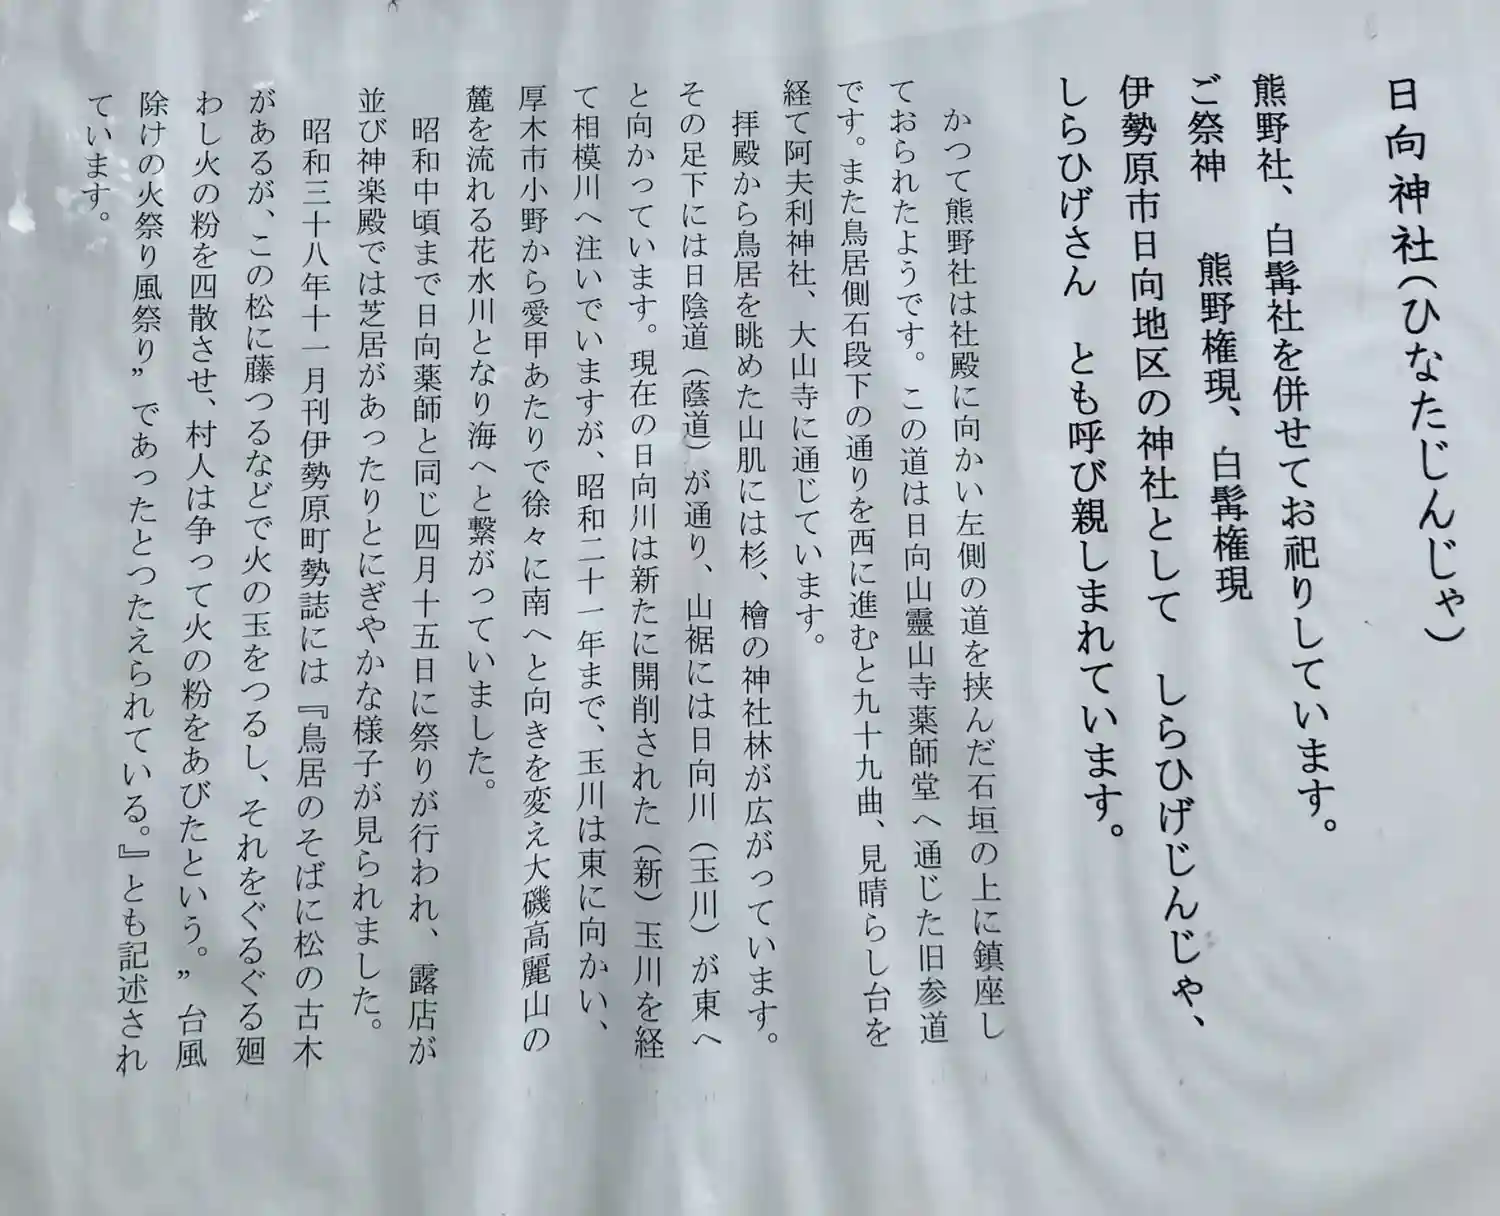 日向神社(ひなたじんじゃ)
熊野社、白髯社を併せてお祀りしています。
ご祭神　熊野権現、白髯権現
伊勢原市日向地区の神社として　しらひげじんじゃ、
しらひげさん　とも呼び親しまれています。
かつて熊野社は社殿に向かい左側の道を挟んだ石垣の上に鎮座し
ておられたようです。この道は日向山靈山寺薬師堂へ通じた旧参道
です。また鳥居側石段下の通りを西に進むと九十九曲、見晴らし台を
経て阿夫利神社、大山寺に通じています。
拝殿から鳥居を眺めた山肌には杉、檜の神社林が広がっています。
その足下には日陰道（蔭道）が通り、山裾には日向川（玉川）が東へ
と向かっています。現在の日向川は新たに開削された（新）玉川を経
て相模川へ注いでいますが、昭和二十一年まで、玉川は東に向かい、
厚木市小野から愛甲あたりで徐々に南へと向きを変え大磯高麗山の
麓を流れる花水川となり海へと繋がっていました。
昭和中頃まで日向薬師と同じ四月十五日に祭りが行われ、露店が
並び神楽殿では芝居があったりとにぎやかな様子が見られました。
昭和三十八年十一月刊伊勢原町勢誌には『鳥居のそばに松の古木
があるが、この松に藤つるなどで火の玉をつるし、それをぐるぐる廻
わし火の粉を四散させ、村人は争って火の粉をあびたという。”台風
除けの火祭り風祭り”であったとつたえられている。』とも記述され
ています。